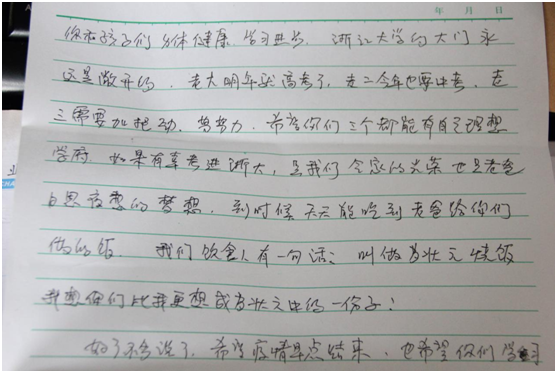 年 月 日
你和孩子们身体健康 学习进步 浙江大学的大门永
远是敞开的,老大明年就高考了,老二今年也要中考,老
三需要加把劲,努努力,希望你们三个都能有自己理想
学府,如果有幸考进浙大,是我们全家的光荣也是老爸
日思夜想的梦想,到时候天天能吃到老爸给你们
做的饭, 我们饮食人有一句话:叫做为状元烧饭
我想你们比我更想成为状元中的一份子!
好了不多说了,希望疫情早点结束,也希望你们学习